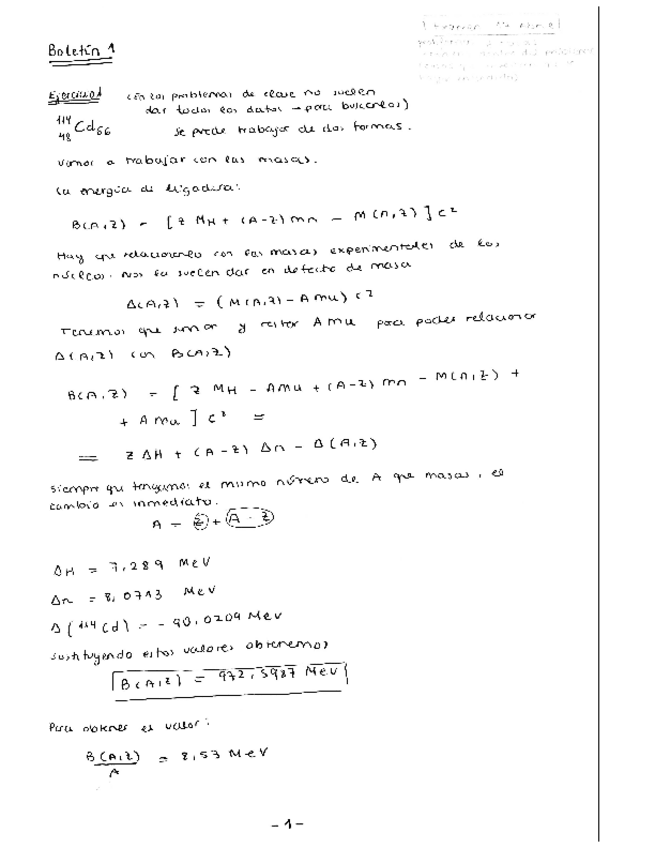 Boletín 1
Ejercicio 1 (En los problemas de clase no suelen
dar todos los datos → para buscarlos)
¹¹⁴₄₈Cd₆₆ se puede trabajar de dos formas.
Vamos a trabajar con las masas.
La energía de ligadura:
B(A,Z) = [Z M_H + (A-Z) m_n - M(A,Z)] c²
Hay que relacionarlo con las masas experimentales de los
núcleos. Nos la suelen dar en defecto de masa
Δ(A,Z) = (M(A,Z) - A m_u) c²
Tenemos que sumar y restar A m_u para poder relacionar
Δ(A,Z) con B(A,Z)
B(A,Z) = [Z M_H - A m_u + (A-Z) m_n - M(A,Z) +
+ A m_u] c² =
= Z Δ_H + (A-Z) Δ_n - Δ(A,Z)
siempre que tengamos el mismo número de A que masas, el
cambio es inmediato.
A = Z + A - Z
Δ_H = 7,289 MeV
Δ_n = 8,0713 MeV
Δ(¹¹⁴Cd) = -90,0209 MeV
sustituyendo estos valores obtenemos
B(A,Z) = 972,5987 MeV
Para obtener el valor:
B(A,Z)/A = 8,53 MeV
-1-